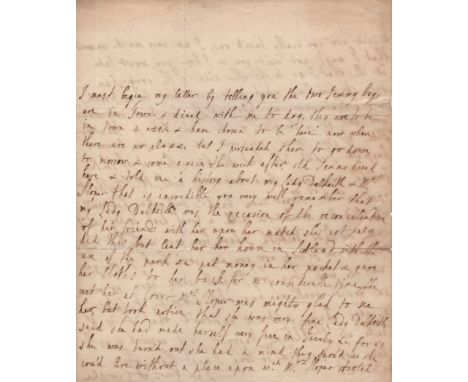 I must begin my letter by telling you the two Jemmy boys
are in Town & dined with me to day, they are to be
in Town a week & have chose to be here now when
there are no plays. but I perswaded them to go down
to morrow & come again the week after old Jemmy dined
here & told me a history about my Lady Dalkeith & Mrs
Sloper that is incredible you very well remember that
my Lady Dalkeith was the occasion of the reconciliation
of her friends with her upon her match she not only
did this but lent her her house in Scotland with the
use of the park & put money in her pocket & gave
her cloths to her back for a considerable time, she
met her at Mrs Sloper was mighty glad to see
her, but took notice that she was very fine Lady Dalkeith
said she had made herself very fine in for as
she was turn'd out she had a mind they should see she
cou'd live without a place upon wch Mrs Sloper